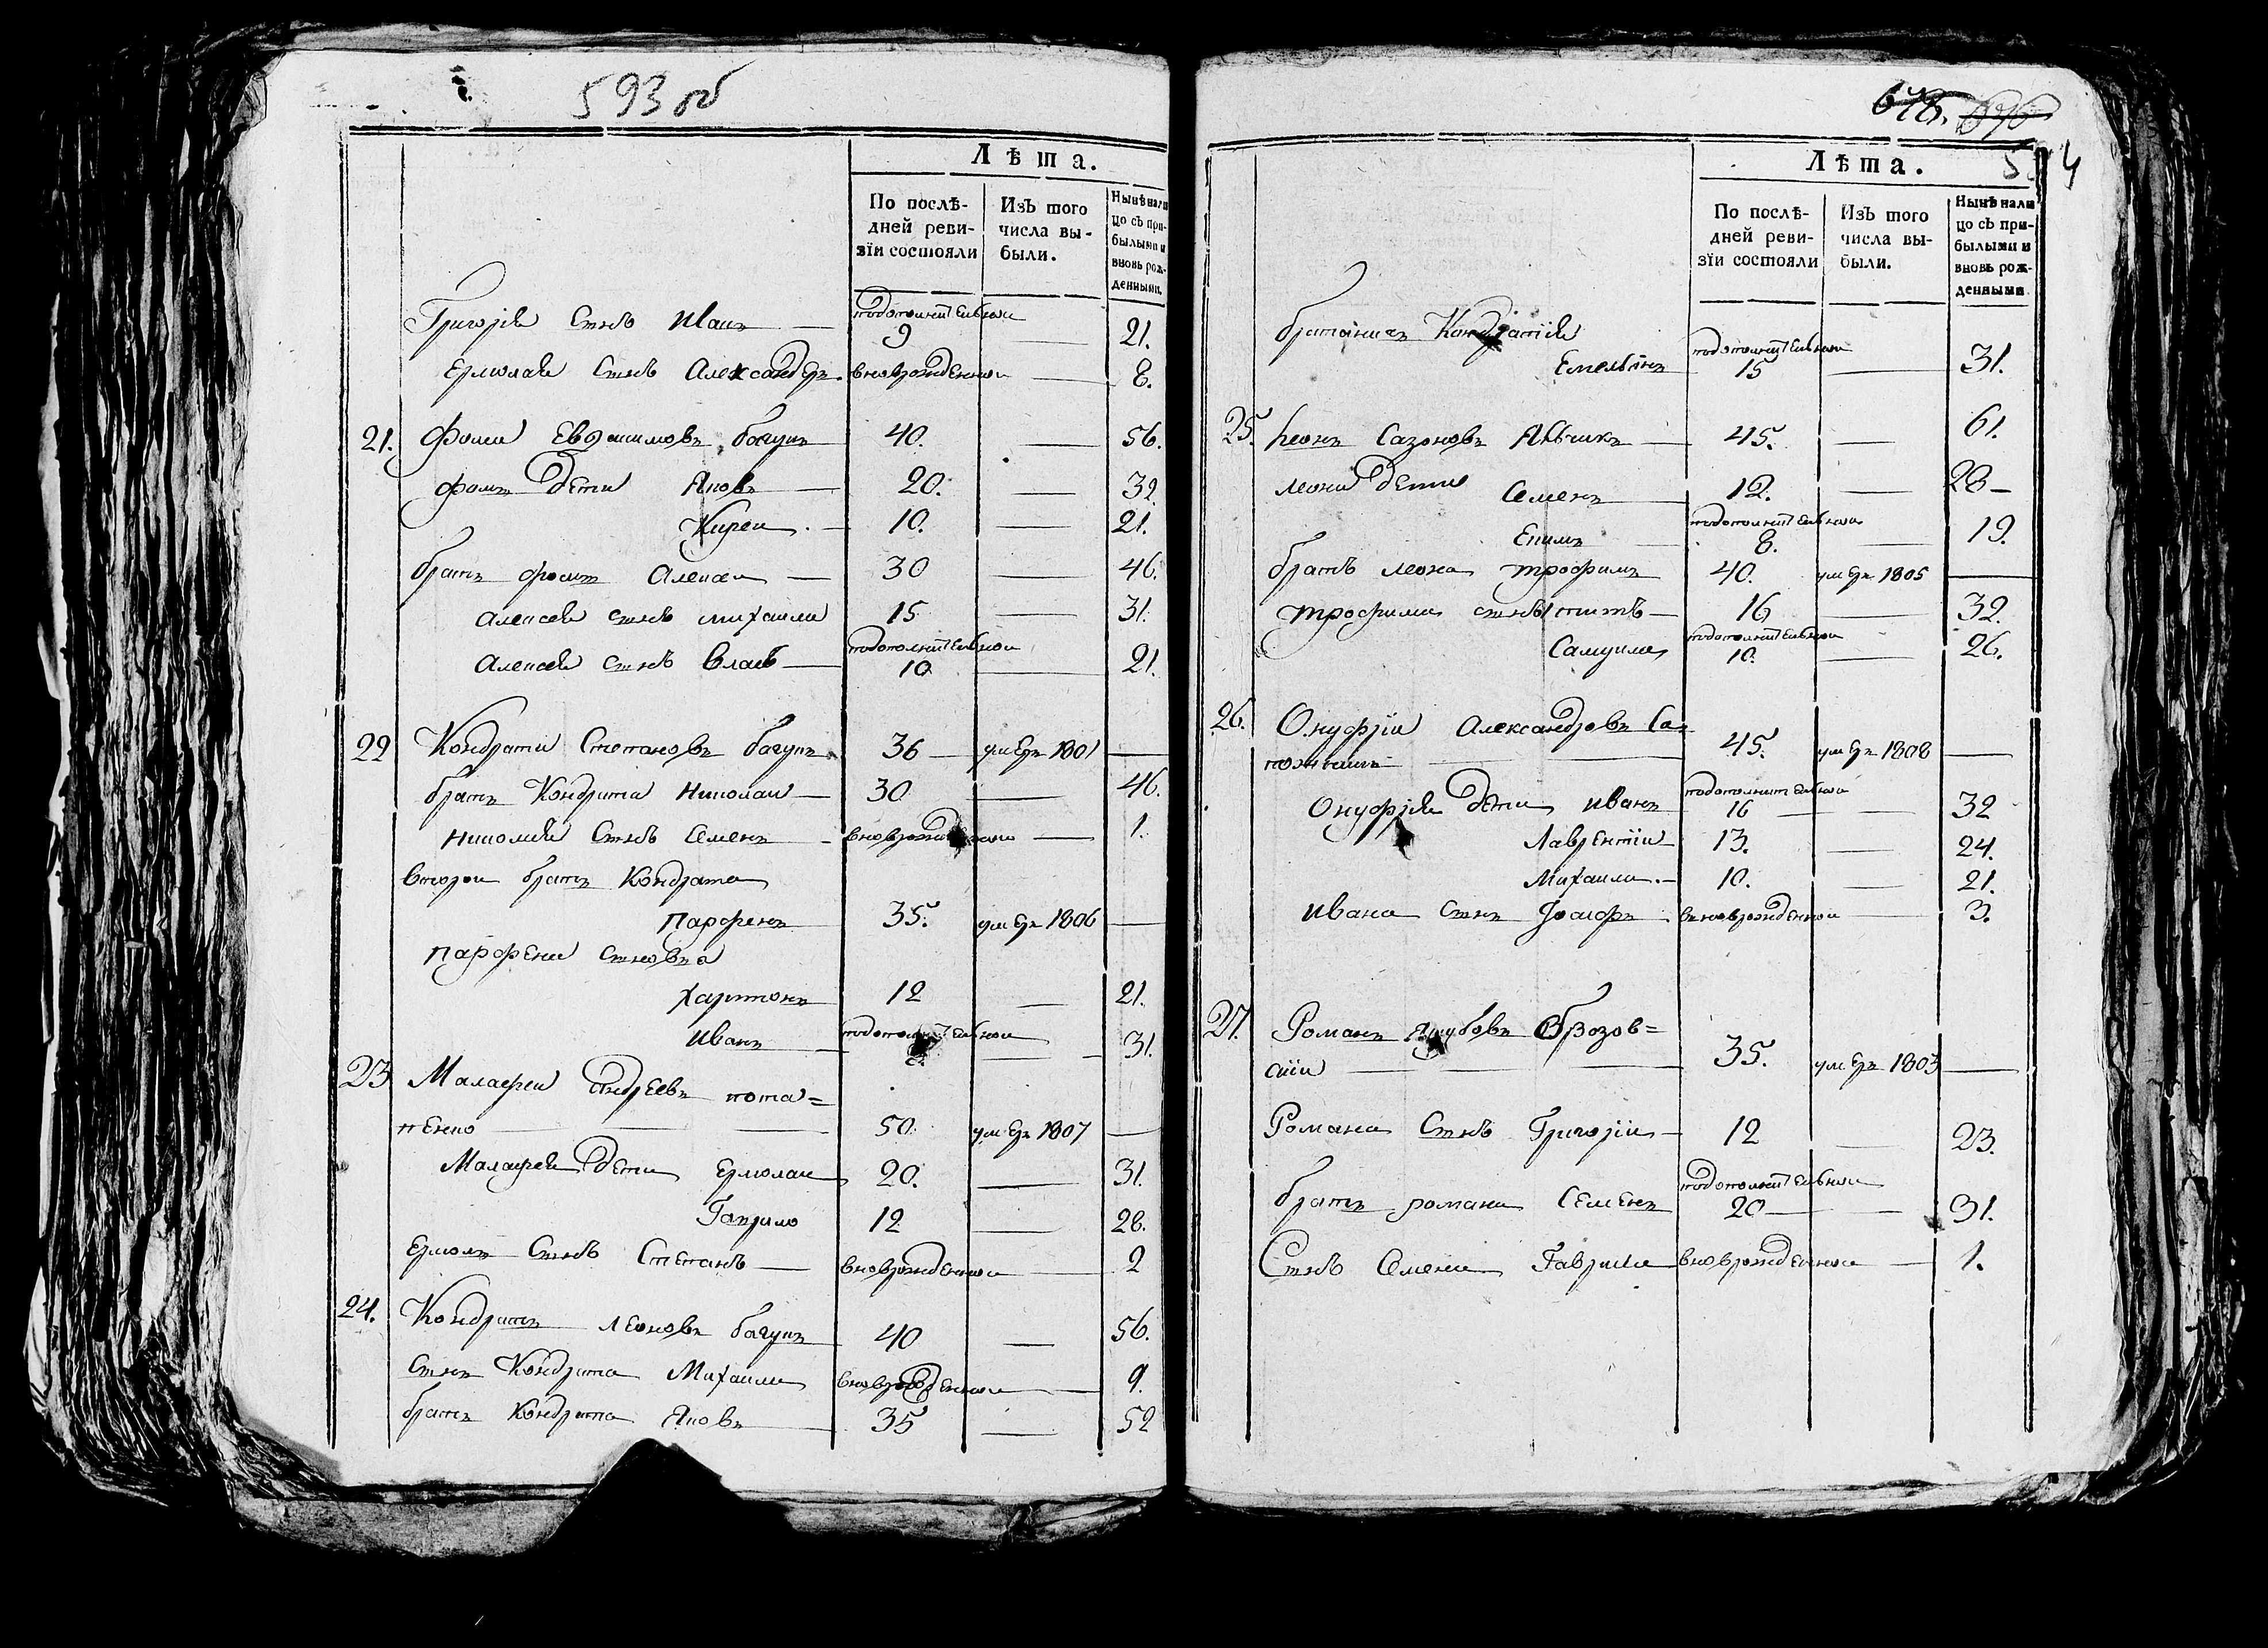 593 об
Лѣта.
По послѣ-
дней реви-
зїи состояли
Изъ того
числа вы-
были.
Нынѣ нали
цо съ при-
былыми и
вновь рож-
денными.
Григорія Сынъ Исаи подополнителной 9 21.
Ермолая Сынъ Александеръ вновьрожденной 8.
21. Фома Евдокимовъ багунъ 40. 56.
Фомы дети Яковъ 20. 32.
Кирей 10. 21.
братъ Фомы Алексеи 30 46.
Алексея сынъ михаила 15 31.
Алексея сынъ власъ подополнителной 10 21.
22 Кондрати Степановъ багунъ 36 умеръ 1801
братъ Кондрата Николаи 30 46.
Николая Сынъ Семенъ вновьрожденной 1.
второи братъ Кондрата
Парфенъ 35. умеръ 1806
Парфена Сыновья
харитонъ 12 21.
Иванъ подополнителной 31.
23 Малафеи андреевъ пота=
пенко 50. умеръ 1807
Малафея дети ермолаи 20. 31.
Гаврило 12 28.
Ермолы Сынъ Степанъ вновьрожденной 2
24. Кондратъ Леоновъ багунъ 40 56.
Сынъ Кондрата Михаила вновьрожденной 9.
братъ Кондрата Яковъ 35 52
594
Лѣта.
По послѣ-
дней реви-
зїи состояли
Изъ того
числа вы-
были.
Нынѣ нали
цо съ при-
былыми и
вновь рож-
денными
братаничъ Кондратія
Емельянъ подополнителной 15 31.
25. Леонъ Сазоновъ 45. 61.
леона дети Семенъ 12. 28
Екимъ подополнителной 8. 19.
братъ леона трофимъ 40. умеръ 1805
трофима сыны титъ 16 32.
Самуила подополнителной 10. 26.
26. Онуфріи Александровъ Са=
пожникъ 45. умеръ 1808
Онуфрія дети иванъ подополнителной 16 32
Лаврентіи 13. 24.
Михаила 10. 21.
ивана Сынъ Іосифъ вновьрожденной 3.
27. Романъ Якубовъ Оброзов=
скіи 35. умеръ 1803
Романа Сынъ Григоріи 12 23.
братъ романа Семенъ подополнителной 20 31.
Сынъ Семена Гаврила вновьрожденной 1.